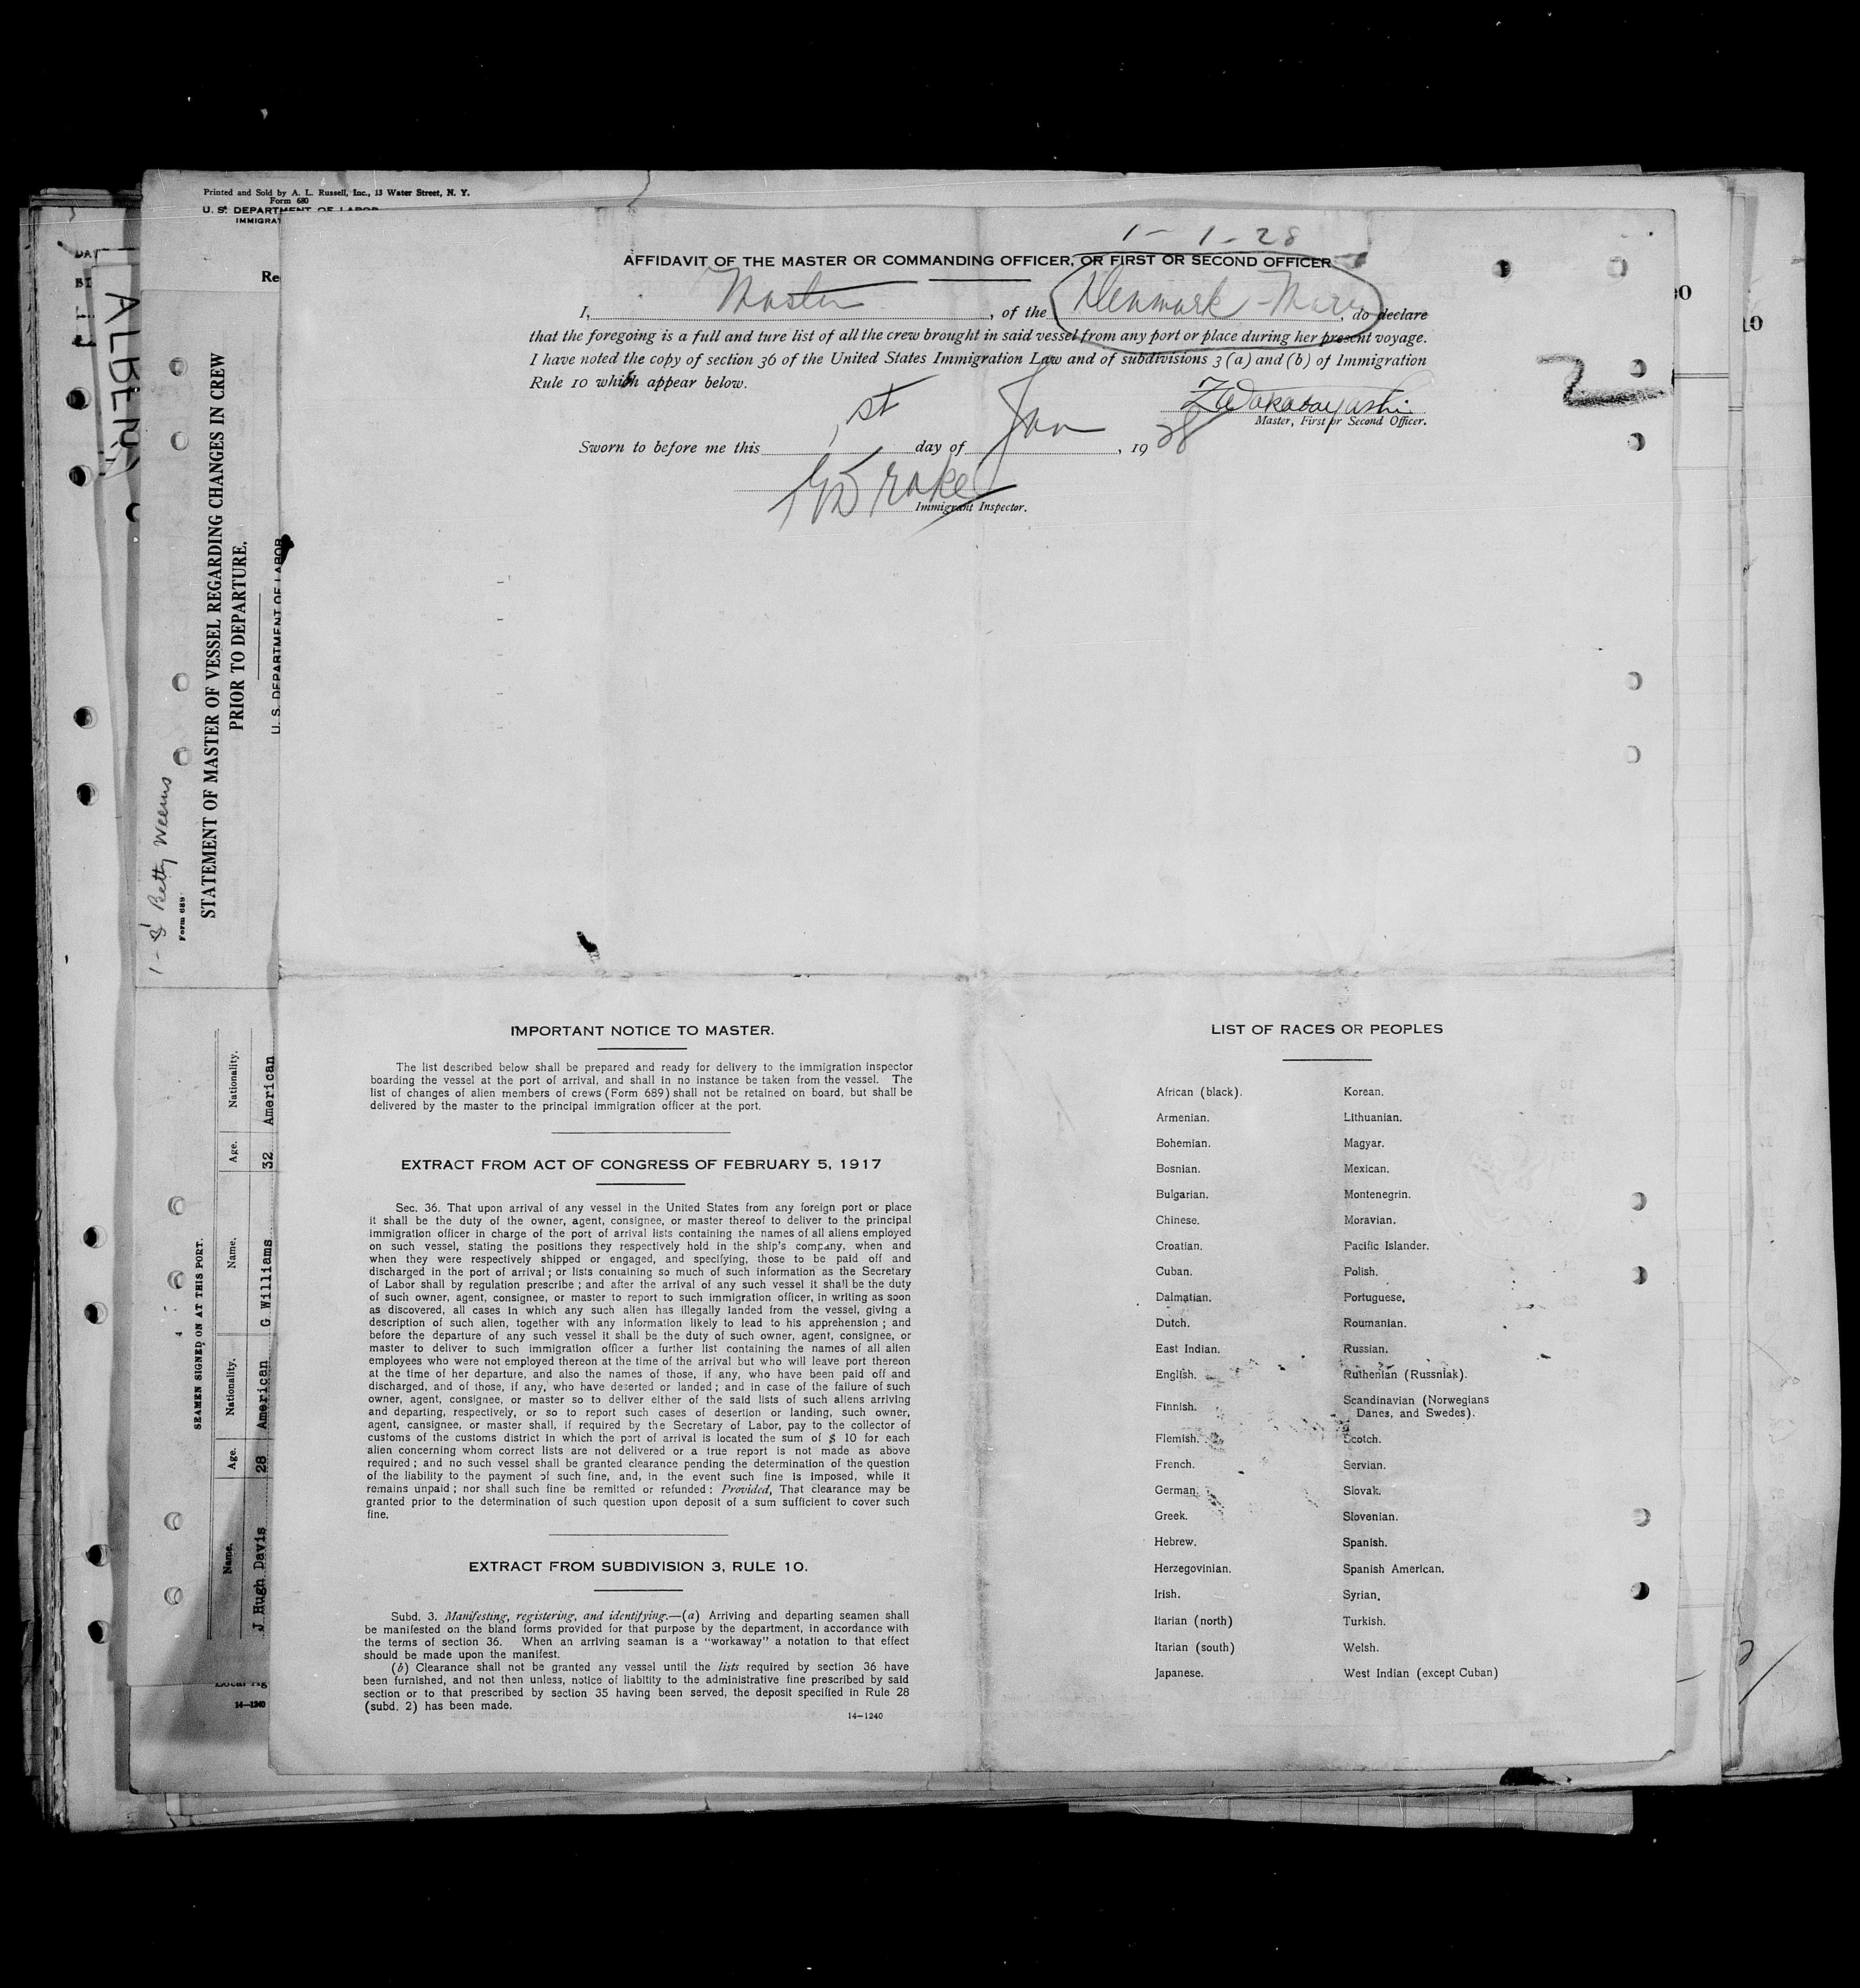 Printed and Sold by A. L. Russell, Inc., 13 Water Street, N. Y.
Form 680
U. S. DEPARTMENT OF LABOR
IMMIGRAT
Re
1 - 1 - 28
AFFIDAVIT OF THE MASTER OR COMMANDING OFFICER, OR FIRST OR SECOND OFFICER
I, Master, of the Denmark Maru, do declare
that the foregoing is a full and ture list of all the crew brought in said vessel from any port or place during her present voyage.
I have noted the copy of section 36 of the United States Immigration Law and of subdivisions 3 (a) and (b) of Immigration
Rule 10 which appear below.
Z Wakabayashi
Master, First or Second Officer.
2
Sworn to before me this 1st day of Jan, 1928
Drake
Immigrant Inspector.
IMPORTANT NOTICE TO MASTER.
The list described below shall be prepared and ready for delivery to the immigration inspector
boarding the vessel at the port of arrival, and shall in no instance be taken from the vessel. The
list of changes of alien members of crews (Form 689) shall not be retained on board, but shall be
delivered by the master to the principal immigration officer at the port.
EXTRACT FROM ACT OF CONGRESS OF FEBRUARY 5, 1917
Sec. 36. That upon arrival of any vessel in the United States from any foreign port or place
it shall be the duty of the owner, agent, consignee, or master thereof to deliver to the principal
immigration officer in charge of the port of arrival lists containing the names of all aliens employed
on such vessel, stating the positions they respectively hold in the ship's company, when and
when they were respectively shipped or engaged, and specifying, those to be paid off and
discharged in the port of arrival; or lists containing so much of such information as the Secretary
of Labor shall by regulation prescribe; and after the arrival of any such vessel it shall be the duty
of such owner, agent, consignee, or master to report to such immigration officer, in writing as soon
as discovered, all cases in which any such alien has illegally landed from the vessel, giving a
description of such alien, together with any information likely to lead to his apprehension; and
before the departure of any such vessel it shall be the duty of such owner, agent, consignee, or
master to deliver to such immigration officer a further list containing the names of all alien
employees who were not employed thereon at the time of the arrival but who will leave port thereon
at the time of her departure, and also the names of those, if any, who have been paid off and
discharged, and of those, if any, who have deserted or landed; and in case of the failure of such
owner, agent, consignee, or master so to deliver either of the said lists of such aliens arriving
and departing, respectively, or so to report such cases of desertion or landing, such owner,
agent, cansignee, or master shall, if required by the Secretary of Labor, pay to the collector of
customs of the customs district in which the port of arrival is located the sum of $ 10 for each
alien concerning whom correct lists are not delivered or a true report is not made as above
required; and no such vessel shall be granted clearance pending the determination of the question
of the liability to the payment of such fine, and, in the event such fine is imposed, while it
remains unpaid; nor shall such fine be remitted or refunded: Provided, That clearance may be
granted prior to the determination of such question upon deposit of a sum sufficient to cover such
fine.
EXTRACT FROM SUBDIVISION 3, RULE 10.
Subd. 3. Manifesting, registering, and identifying.—(a) Arriving and departing seamen shall
be manifested on the bland forms provided for that purpose by the department, in accordance with
the terms of section 36. When an arriving seaman is a "workaway" a notation to that effect
should be made upon the manifest.
(b) Clearance shall not be granted any vessel until the lists required by section 36 have
been furnished, and not then unless, notice of liabitity to the administrative fine prescribed by said
section or to that prescribed by section 35 having been served, the deposit specified in Rule 28
(subd. 2) has been made.
14—1240
LIST OF RACES OR PEOPLES
African (black).
Armenian.
Bohemian.
Bosnian.
Bulgarian.
Chinese.
Croatian.
Cuban.
Dalmatian.
Dutch.
East Indian.
English.
Finnish.
Flemish.
French.
German.
Greek.
Hebrew.
Herzegovinian.
Irish.
Itarian (north)
Itarian (south)
Japanese.
Korean.
Lithuanian.
Magyar.
Mexican.
Montenegrin.
Moravian.
Pacific Islander.
Polish.
Portuguese.
Roumanian.
Russian.
Ruthenian (Russniak).
Scandinavian (Norwegians
Danes, and Swedes).
Scotch.
Servian.
Slovak.
Slovenian.
Spanish.
Spanish American.
Syrian.
Turkish.
Welsh.
West Indian (except Cuban)
1 - 8 Betty Weems
Form 689
STATEMENT OF MASTER OF VESSEL REGARDING CHANGES IN CREW
PRIOR TO DEPARTURE.
U. S. DEPARTMENT OF LABOR
SEAMEN SIGNED ON AT THIS PORT.
Name. Age. Nationality. Name. Age. Nationality.
J. Hugh Davis 28 American G Williams 32 American
14—1240